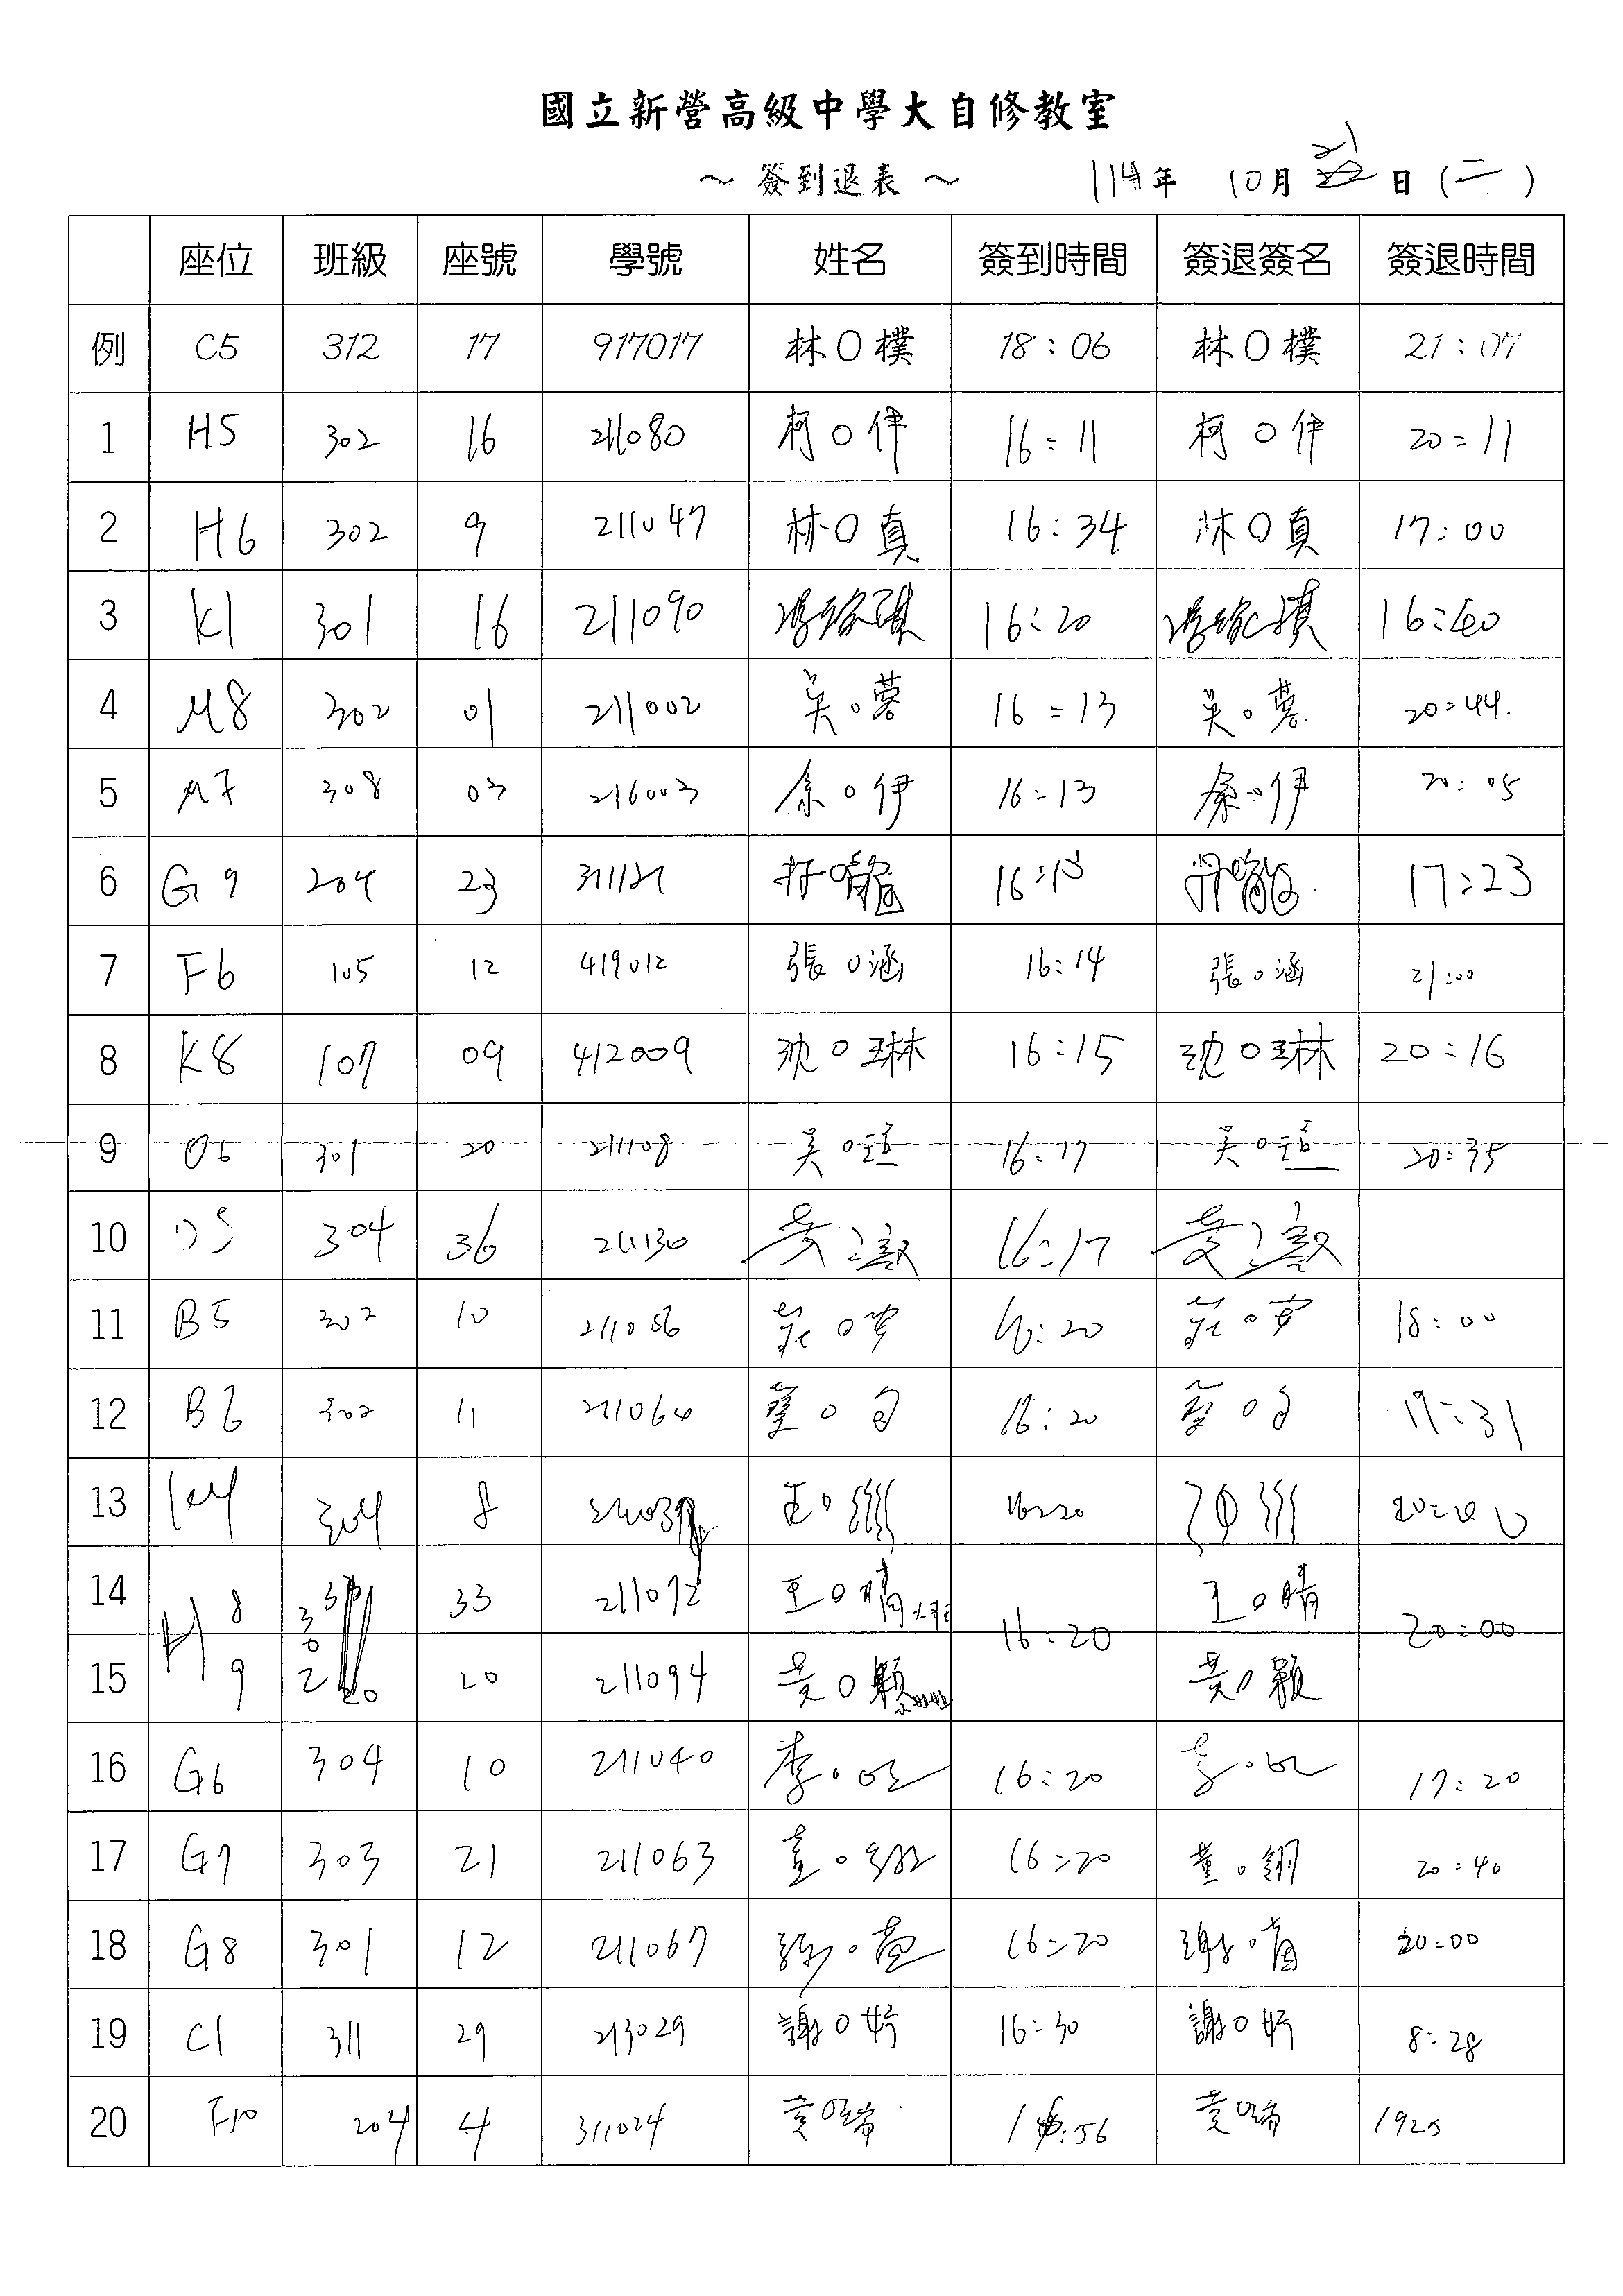 國立新營高級中學大自修教室
～ 簽到退表 ～ 114年 10月 21日 (二)
座位 班級 座號 學號 姓名 簽到時間 簽退簽名 簽退時間
例 C5 312 17 917017 林O樸 18:06 林O樸 21:07
1 H5 302 16 211080 柯O伊 16:11 柯O伊 20:11
2 H6 302 9 211047 林O真 16:34 林O真 17:00
3 K1 301 16 211090 16:20 16:40
4 M8 302 01 211002 吳O蓉 16:13 吳O蓉 20:44
5 M7 308 03 216003 余O伊 16:13 余O伊 20:05
6 G9 204 23 16:13 17:23
7 F6 105 12 419012 張O涵 16:14 張O涵 21:00
8 K8 107 09 412009 沈O琳 16:15 沈O琳 20:16
9 301 20 211108 吳O 16:17 吳O 20:35
10 304 36 211130 16:17
11 B5 302 10 211056 莊O 16:20 莊O 18:00
12 B6 302 11 211064 蔡O 16:20 蔡O 17:31
13 K4 304 8 王O 16:20
14 H8 33 211072 王O晴 16:20 王O晴 20:00
15 9 302 20 211094 黃O顆 黃O顆
16 G6 304 10 211040 李O 16:20 李O 17:20
17 G7 303 21 211063 董O翎 16:20 董O翎 20:40
18 G8 301 12 211067 謝O 16:20 謝O 20:00
19 C1 311 29 213029 謝O妤 16:30 謝O妤 8:28
20 F10 204 4 311024 黃O瑞 16:56 黃O瑞 1925